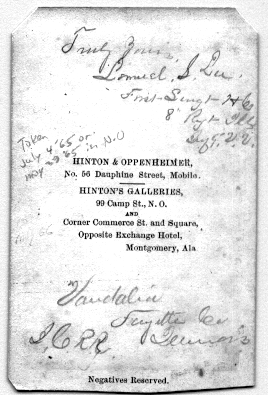 Truly Yours
Lemuel S. Lee
First Sergt
8" Regt Ills
Inf. V. V.
Taken
July 4 '65 or
'65 in N.O
HINTON & OPPENHEIMER,
No. 56 Dauphine Street, Mobile.
HINTON'S GALLERIES,
99 Camp St., N. O.
AND
Corner Commerce St. and Square,
Opposite Exchange Hotel,
Montgomery, Ala
Vandalia
Fayette Co
I. C. R R Illinois
Negatives Reserved.